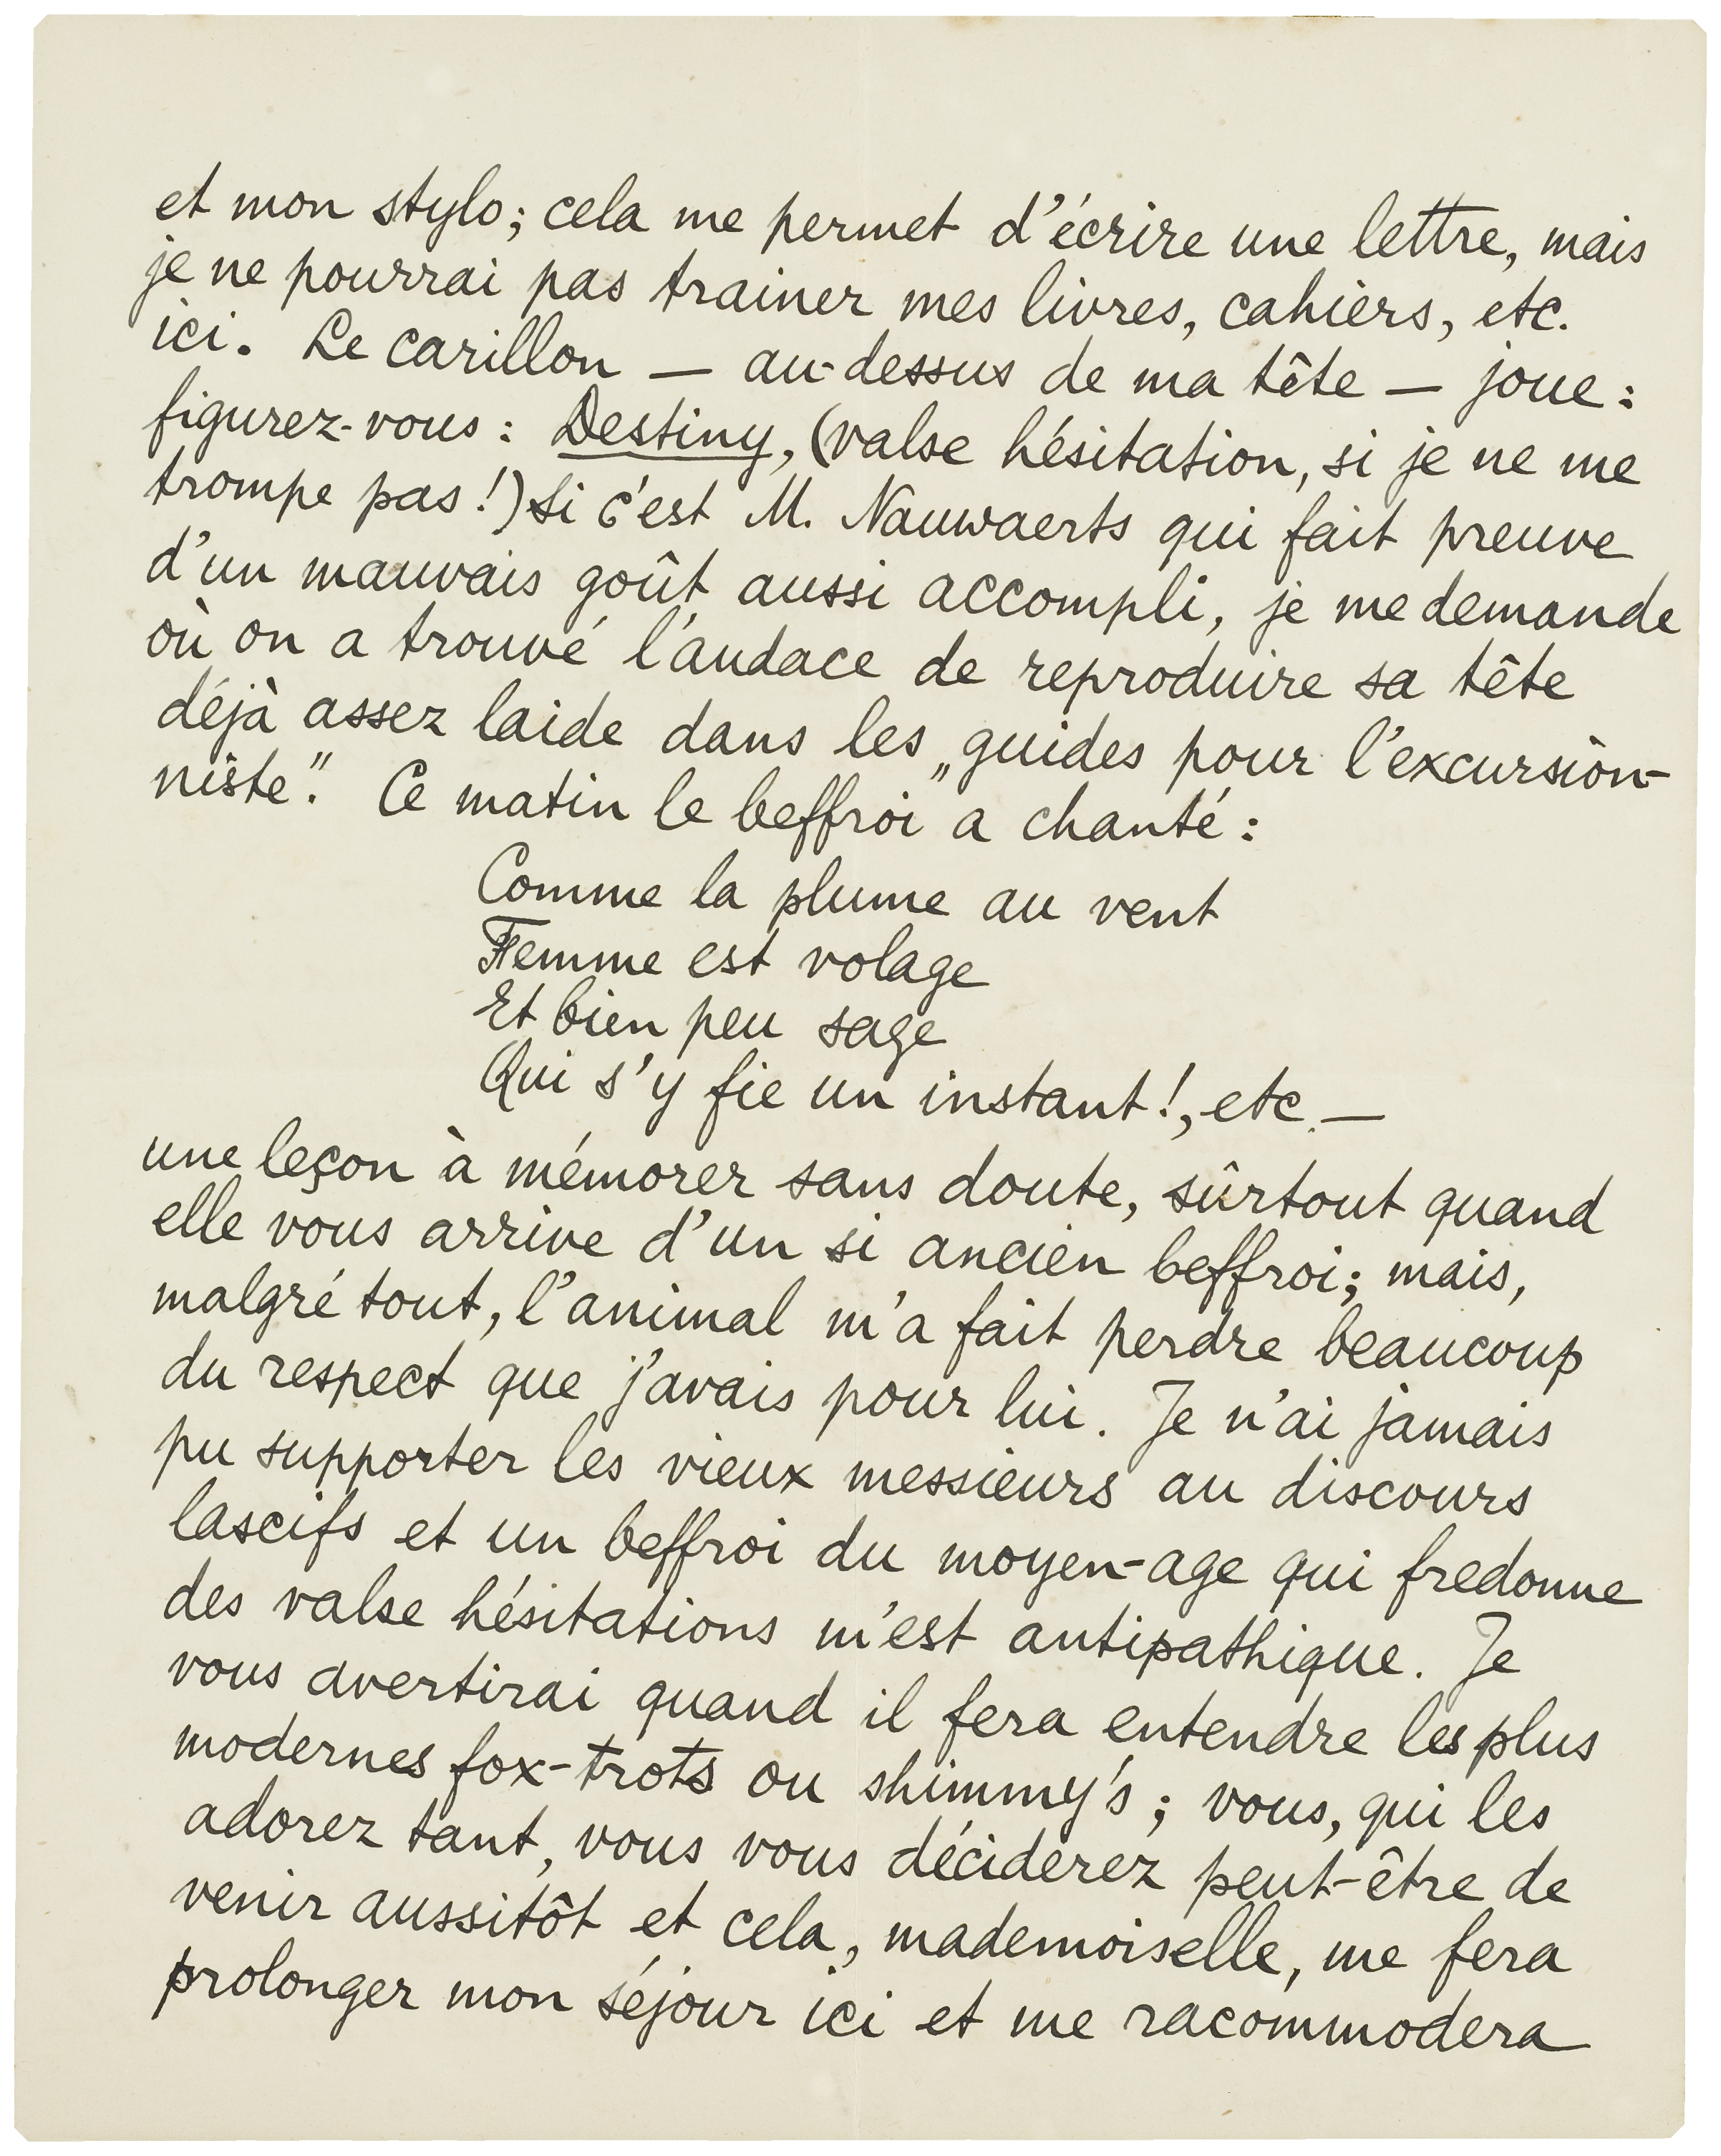 et mon stylo; cela me permet d'écrire une lettre, mais
je ne pourrai pas trainer mes livres, cahiers, etc.
ici. Le carillon — au-dessus de ma tête — joue :
figurez-vous : Destiny, (valse hésitation, si je ne me
trompe pas!) Si c'est M. Nauwaerts qui fait preuve
d'un mauvais goût aussi accompli, je me demande
où on a trouvé l'audace de reproduire sa tête
déjà assez laide dans les „guides pour l'excursion-
niste." Ce matin le beffroi a chanté :
Comme la plume au vent
Femme est volage
Et bien peu sage
Qui s'y fie un instant!, etc. —
une leçon à mémorer sans doute, sûrtout quand
elle vous arrive d'un si ancien beffroi; mais,
malgré tout, l'animal m'a fait perdre beaucoup
du respect que j'avais pour lui. Je n'ai jamais
pu supporter les vieux messieurs au discours
lascifs et un beffroi du moyen-age qui fredonne
des valse hésitations m'est antipathique. Je
vous avertirai quand il fera entendre les plus
modernes fox-trots ou shimmy's; vous, qui les
adorez tant, vous vous déciderez peut-être de
venir aussitôt et cela, mademoiselle, me fera
prolonger mon séjour ici et me racommodera